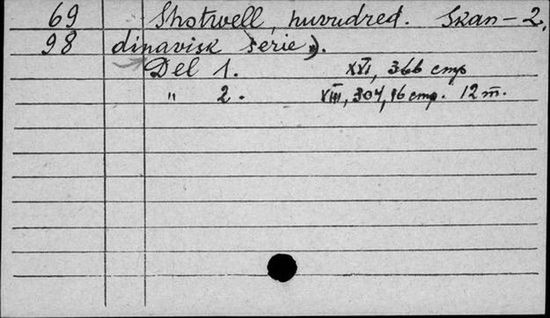 69 Shotwell, huvudred. Skan- 2.
98 dinavisk serie).
Del 1. XVI, 366 стр
" 2. VIII, 304, 16 стр. 12 m.